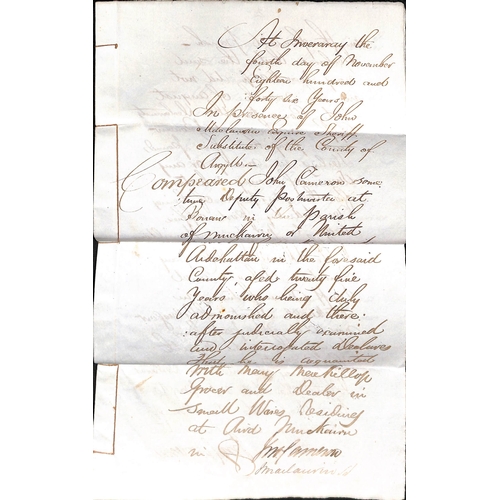 At Inveraray the
fourth day of November
Eighteen hundred and
forty six Years
In presence of John
Maclaurin Esquire Sheriff
Substitute of the County of
Argyll—
Compeared John Cameron some
time Deputy Postmaster at
Bonawe in the Parish
of Muckairn or United
Ardchattan in the foresaid
County, aged twenty five
Years who being duly
admonished and there:
after judicially examined
and interrogated Declares
That he is acquainted
with Mary MacKillop
Grocer and Dealer in
small Wares residing
at Aird Muckairn
in
Jno Cameron
J Maclaurin